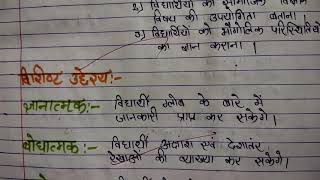 2) विद्यार्थियों को सामाजिक विज्ञान
विषय की उपयोगिता बताना।
3) विद्यार्थियों को भौगोलिक परिस्थितियों
का ज्ञान कराना।
विशिष्ट उद्देश्य:-
ज्ञानात्मक:- विद्यार्थी ग्लोब के बारे में
जानकारी प्राप्त कर सकेंगे।
बोधात्मक:- विद्यार्थी अक्षांश एवं देशांतर
रेखाओं की व्याख्या कर सकेंगे।